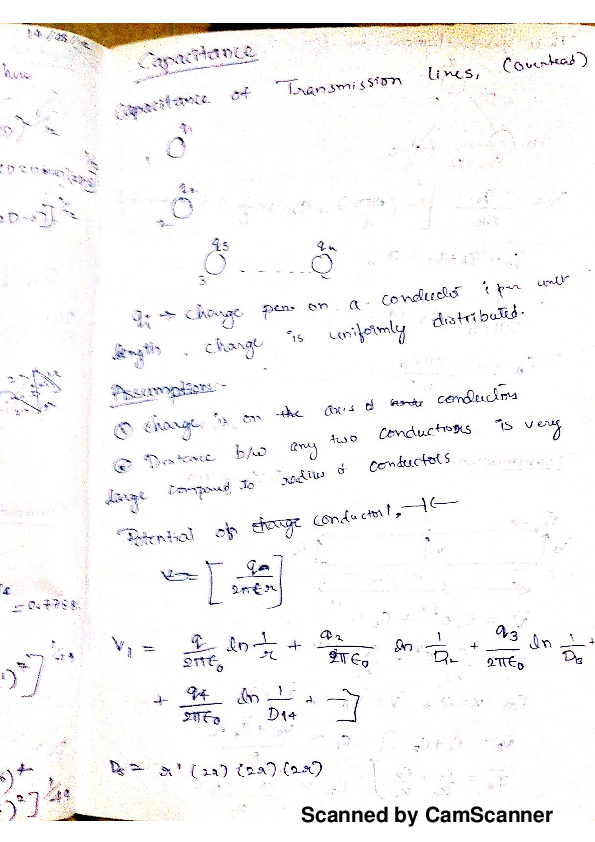 14/08/12
Capacitance
Capacitance of Transmission lines, (overhead)
here
q1
1
q2
2
q3 ...... qn
3
qi → charge pen on a conductor i per unit
length. charge is uniformly distributed.
Assumption:-
① charge is on the axis of conductors
② Distance b/w any two conductions is very
large compared to radius of conductors
Potential of charge conductor 1,
V = [ qn / 2πεr ]
= 0.7788
V1 = q/2πε0 ln 1/r + q2/2πε0 ln 1/D12 + q3/2πε0 ln 1/D13 +
+ q4/2πε0 ln 1/D14 + - ]
Ds = r' (2r) (2r) (2r)
Scanned by CamScanner